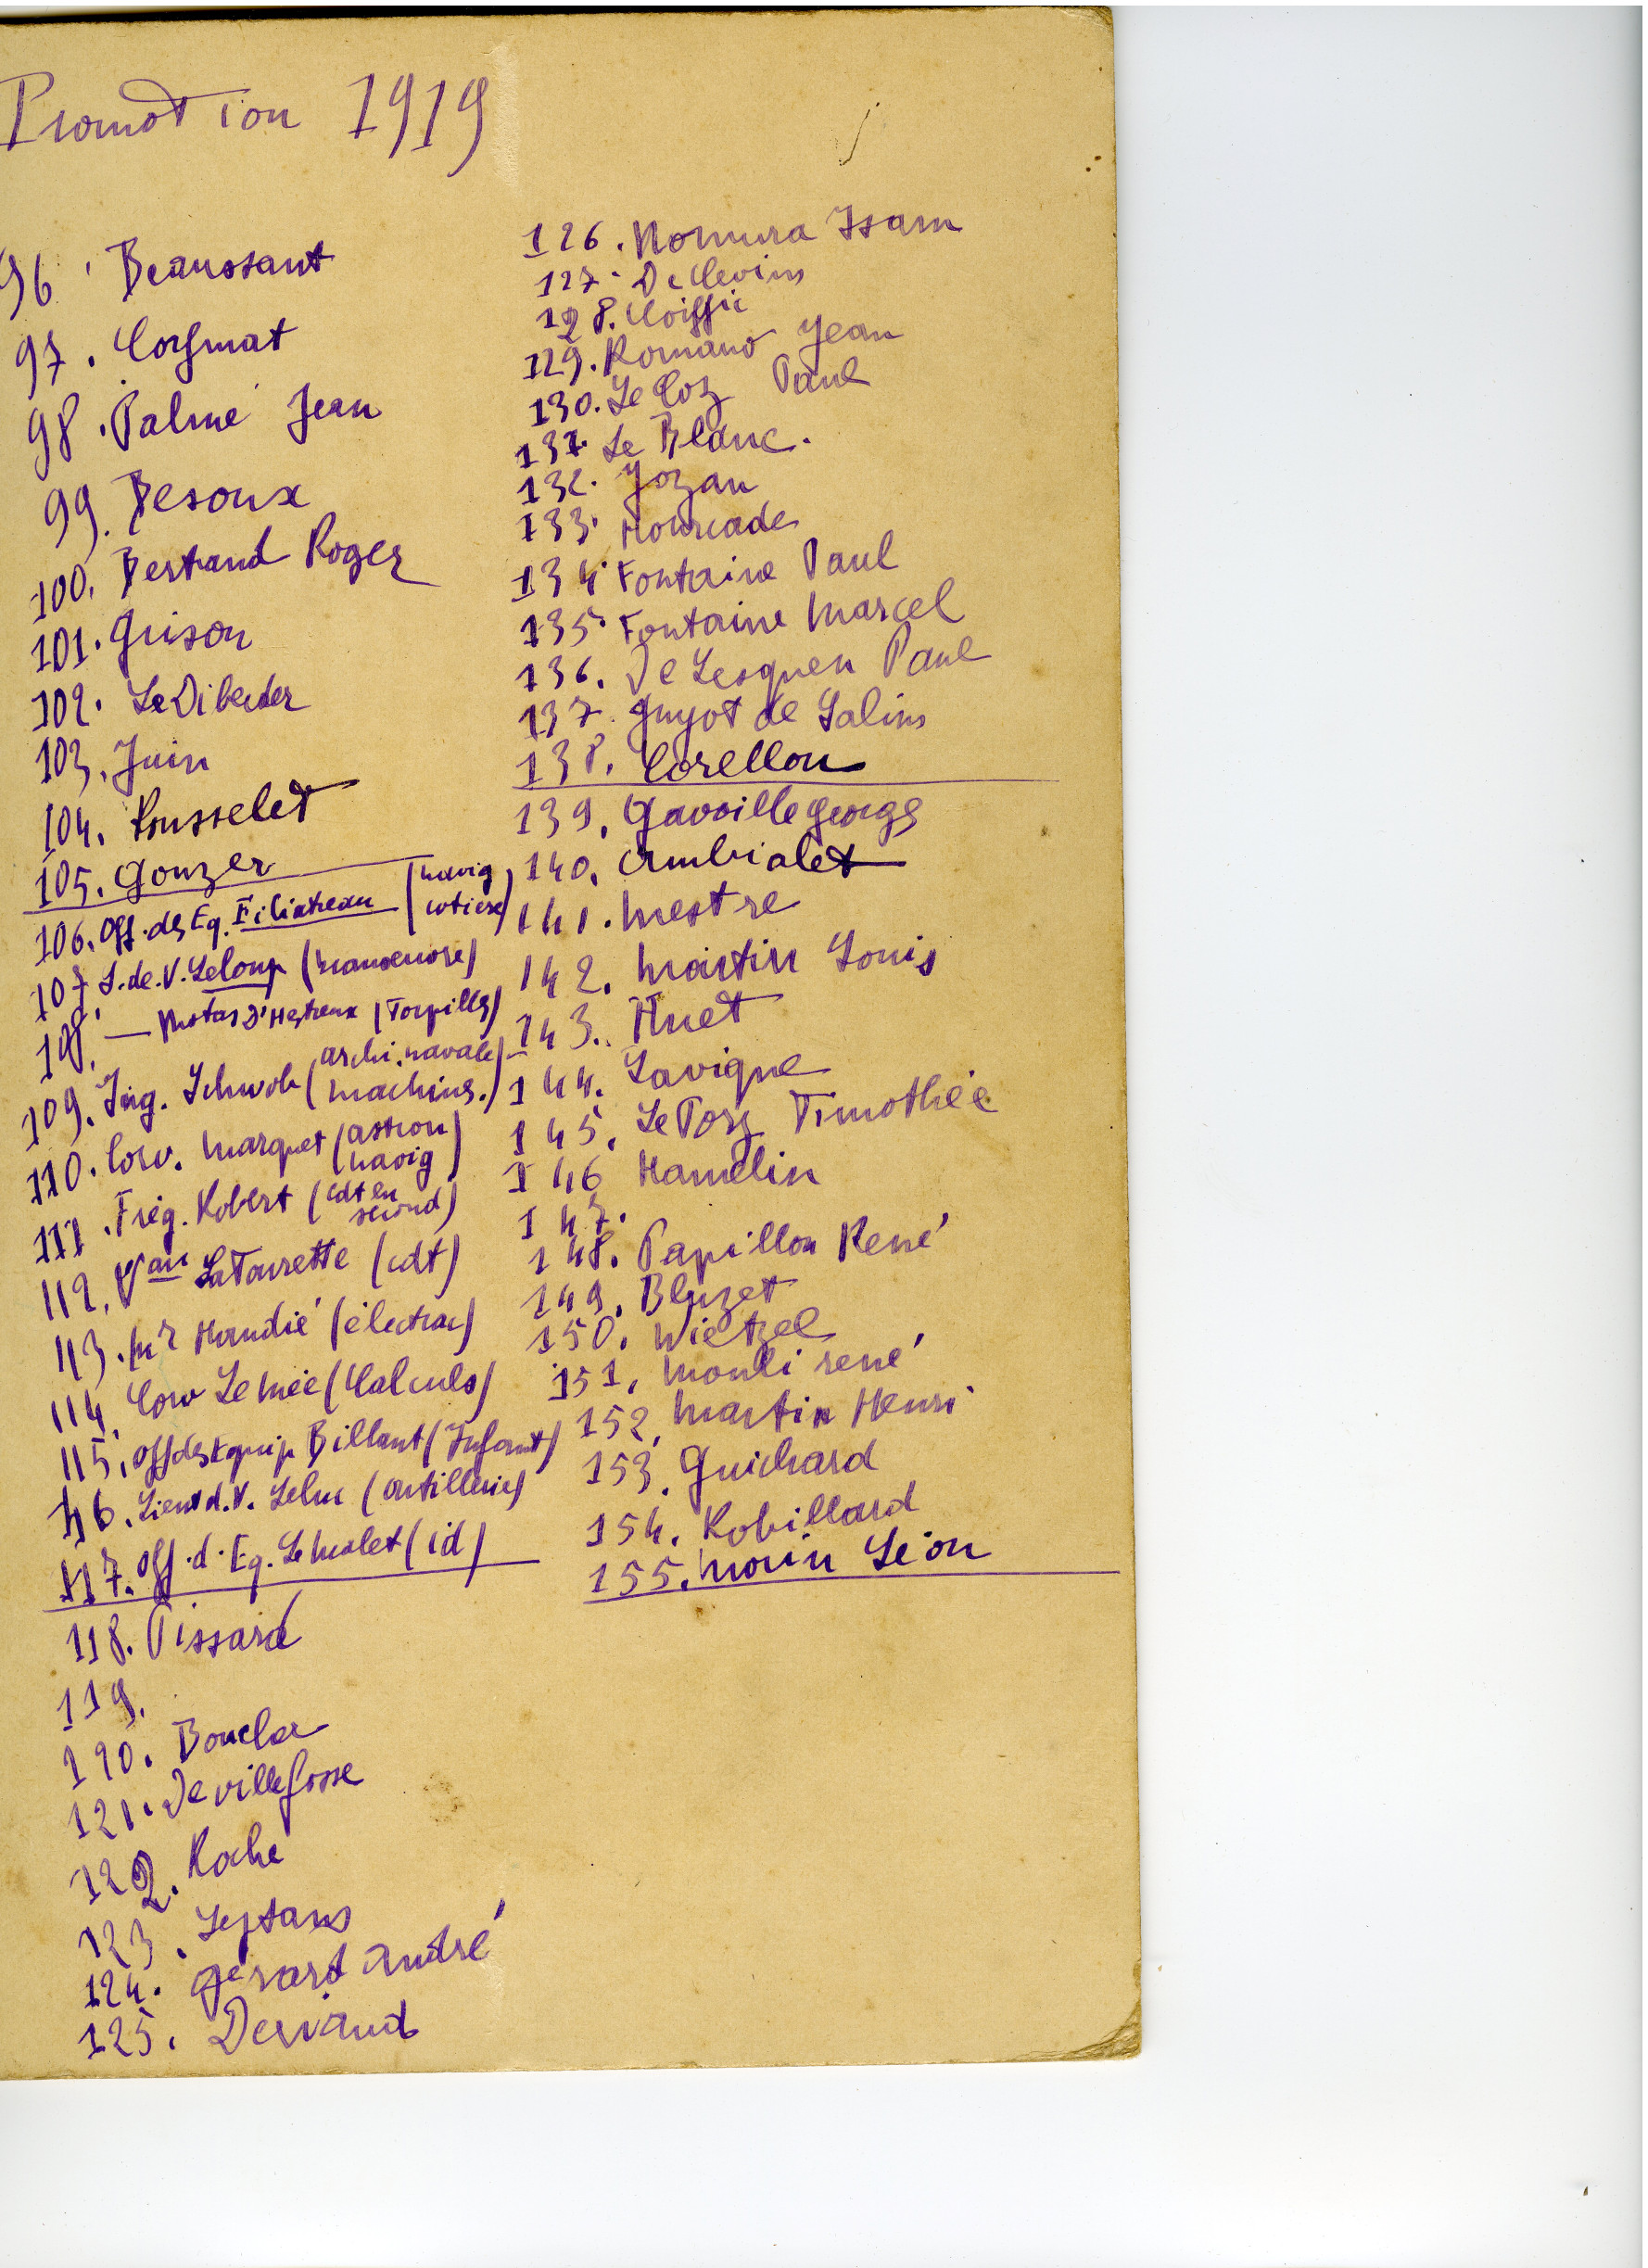 Promotion 1919
96. Beaussant
97. Corfmat
98. Palmé Jean
99. Besoux
100. Bertrand Roger
101. Grison
102. Le Diberder
103. Juin
104. Rousselet
105. Gonzer
106. Off. des Eq. Filiatreau (navig cotière)
107. L. de. V. Leloup (manoeuvre)
108. — Motas D'Hestreux (Torpilles)
109. Ing. Schwob (archi. navale machines.)
110. Corv. Marquet (astron navig)
111. Frég. Robert (cdt en second)
112. Vau LaTourette (cdt)
113. Mr Handié (électric)
114. Corv Le Mée (Calculs)
115. Off des Equip Billant (Infant)
116. Lieut d. V. Leluc (artillerie)
117. Off. d. Eq. Le Molet (id)
118. Pissard
119.
120. Boucler
121. De villefosse
122. Roche
123. Septans
124. Gérard André
125. Derviaud
126. Nomura Isam
127. De Clevins
128. Coiffic
129. Romano Jean
130. Le Coz Paul
131. Le Blanc.
132. Jozan
133. Hourcade
134. Fontaine Paul
135. Fontaine Marcel
136. De Lesquen Paul
137. Guyot de Salins
138. Corellou
139. Gavoille Georges
140. Ambialet
141. Mestre
142. Martin Louis
143. Huet
144. Lavigne
145. Le Porz Timothée
146 Hamelin
147.
148. Papillon René
149. Bluzet
150. Wietzel
151. Mouli rené
152. Martin Henri
153. Guichard
154. Robillard
155. Morin Léon